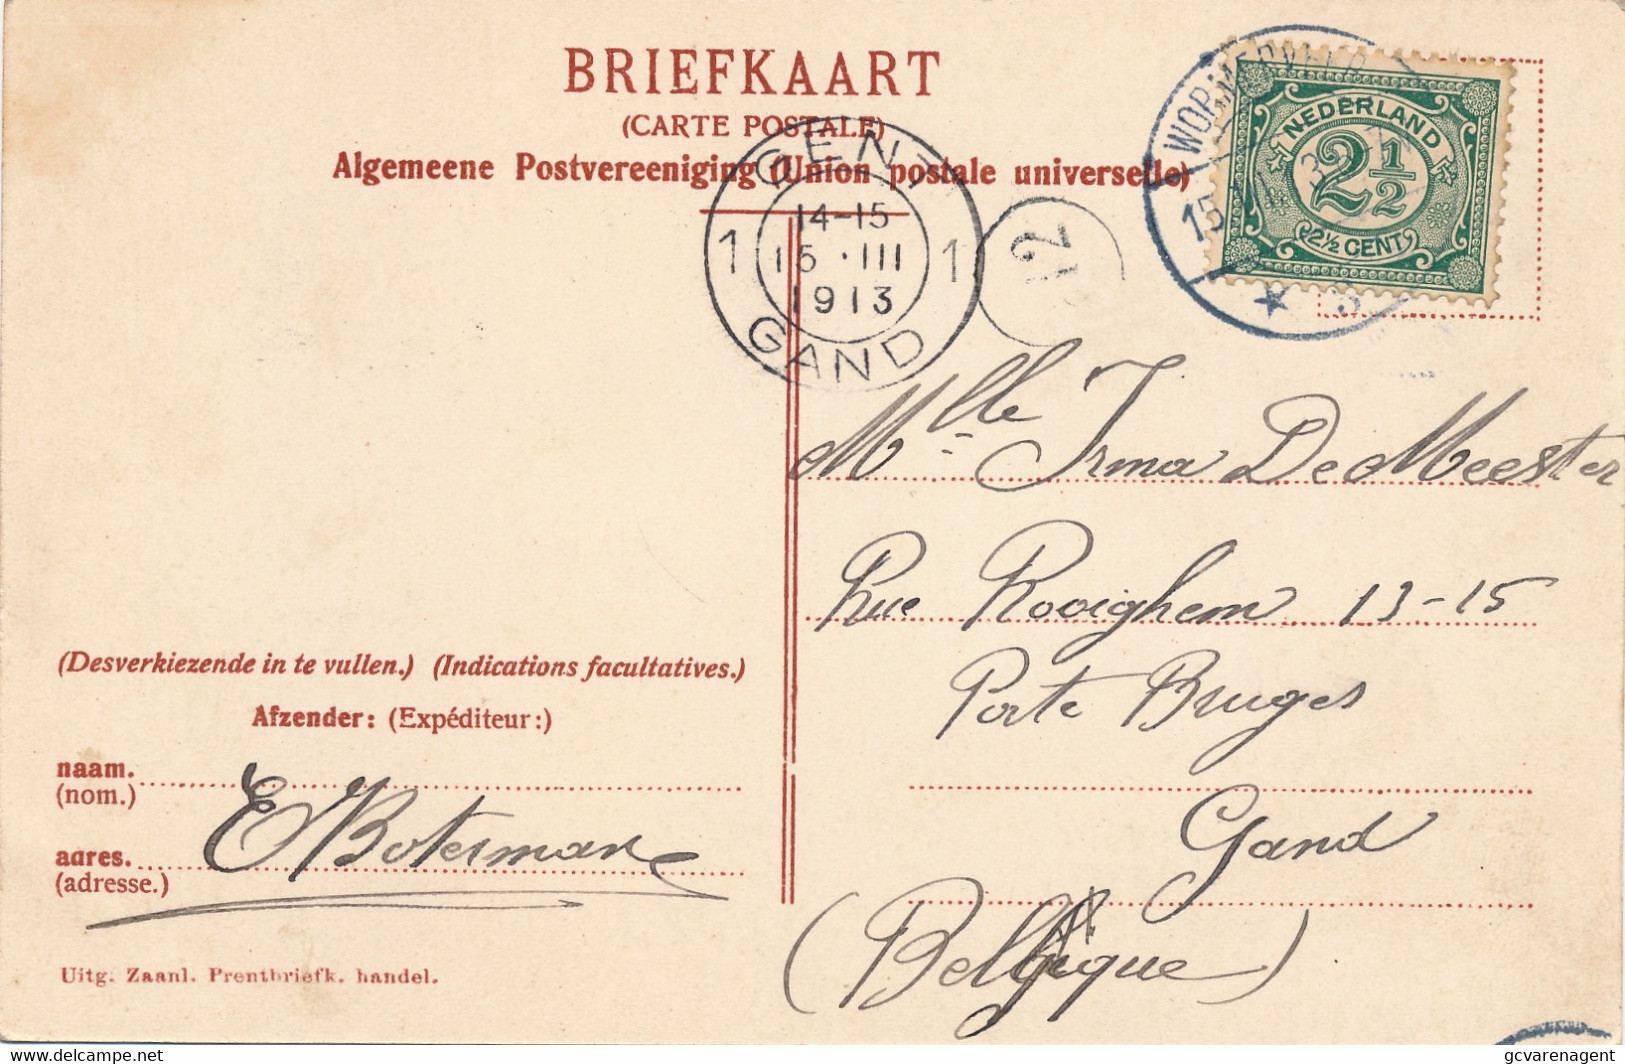 BRIEFKAART
(CARTE POSTALE)
Algemeene Postvereeniging (Union postale universelle)
GENT
14-15
1 15 · III 1
1913
GAND
12
WORMERVEER
NEDERLAND
2½
2½ CENT
Mlle Irma De Meester
Rue Rooighem 13-15
Porte Bruges
Gand
(Belgique)
(Desverkiezende in te vullen.) (Indications facultatives.)
Afzender: (Expéditeur:)
naam.
(nom.)
E Boterman
adres.
(adresse.)
Uitg. Zaanl. Prentbriefk. handel.
delcampe.net
gcvarenagent